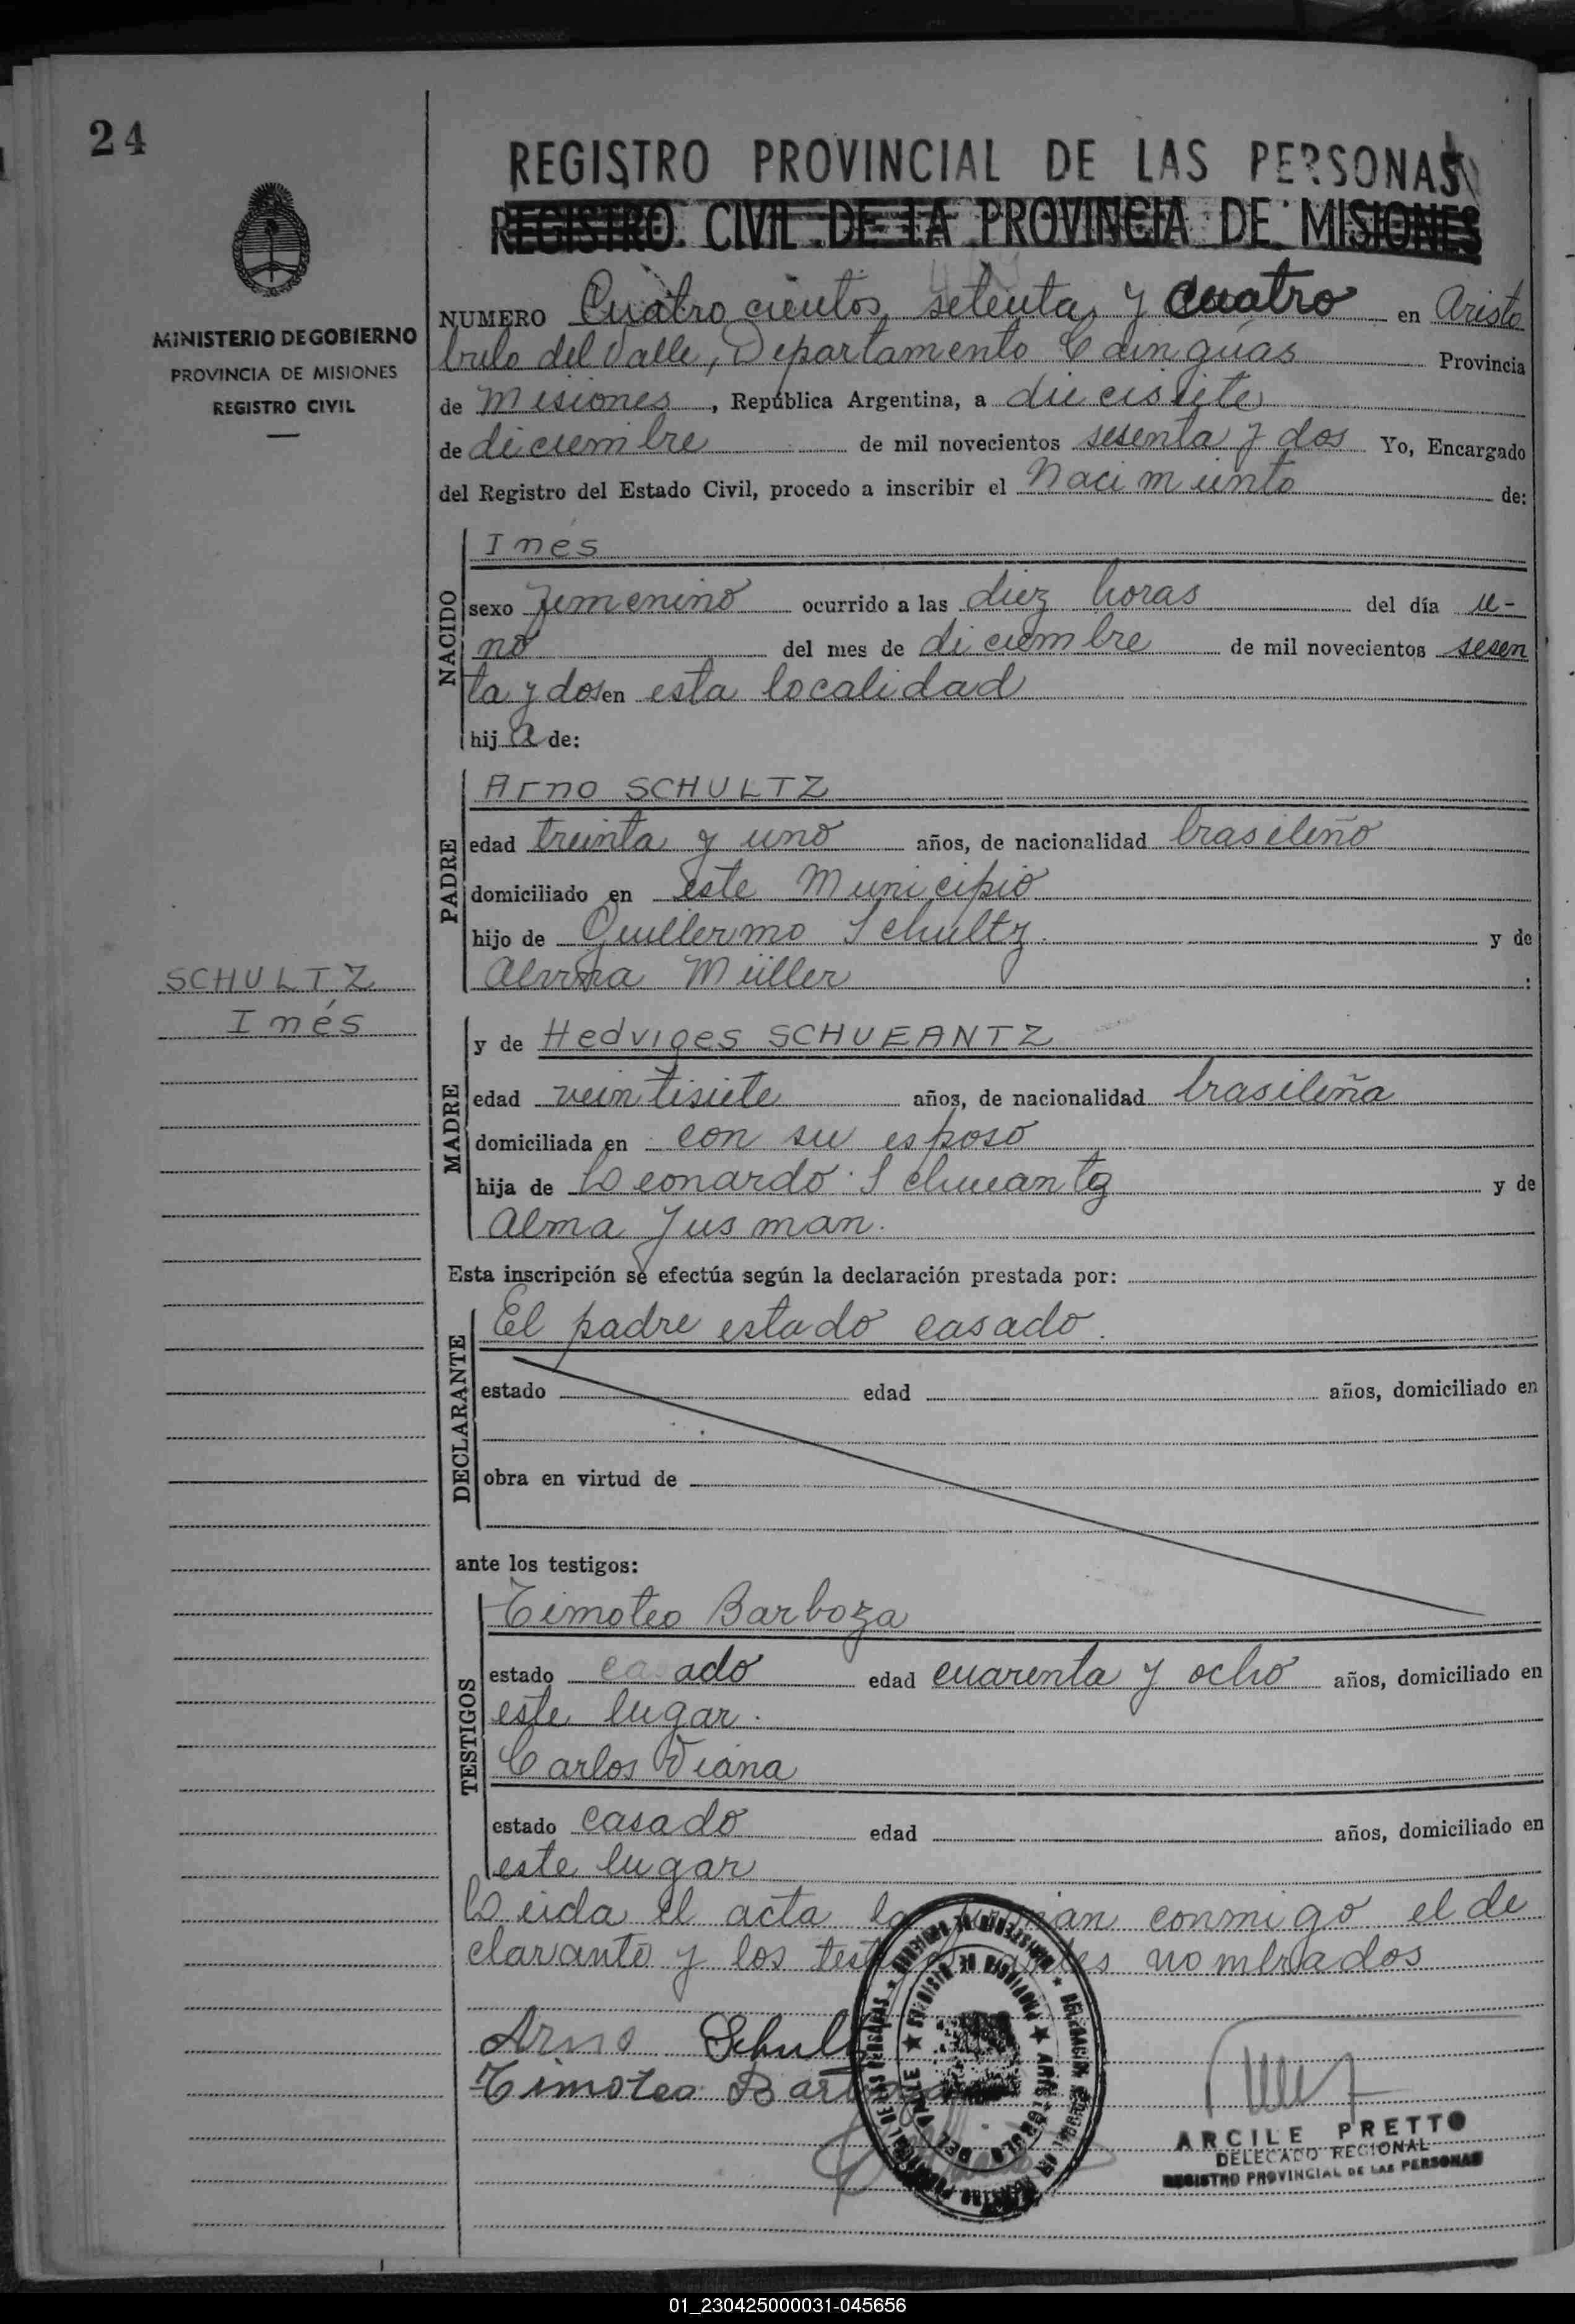 24
MINISTERIO DE GOBIERNO
PROVINCIA DE MISIONES
REGISTRO CIVIL
REGISTRO PROVINCIAL DE LAS PERSONAS
REGISTRO CIVIL DE LA PROVINCIA DE MISIONES
NUMERO Cuatro cientos setenta y cuatro en Aristo
bulo del Valle, Departamento Cainguás Provincia
de Misiones, República Argentina, a diecisiete
de diciembre de mil novecientos sesenta y dos Yo, Encargado
del Registro del Estado Civil, procedo a inscribir el Nacimiento de:
NACIDO
Inés
sexo femenino ocurrido a las diez horas del día u-
no del mes de diciembre de mil novecientos sesen
ta y dos en esta localidad
hija de:
PADRE
Arno SCHULTZ
edad treinta y uno años, de nacionalidad brasileño
domiciliado en este Municipio
hijo de Guillermo Schultz y de
Müller:
SCHULTZ
Inés
MADRE
y de Hedviges SCHUEANTZ
edad veintisiete años, de nacionalidad brasileña
domiciliada en con su esposo
hija de Leonardo Schueantz y de
Alma Jusman.
Esta inscripción se efectúa según la declaración prestada por:
DECLARANTE
El padre estado casado.
estado edad años, domiciliado en
obra en virtud de
ante los testigos:
TESTIGOS
Timoteo Barboza
estado casado edad cuarenta y ocho años, domiciliado en
este lugar.
Carlos Viana
estado casado edad años, domiciliado en
este lugar
Leida el acta la firman conmigo el de
clarante y los testigos antes nombrados
Arno Schultz
Timoteo Barboza
ARCILE PRETTO
DELEGADO REGIONAL
REGISTRO PROVINCIAL DE LAS PERSONAS
01_230425000031-045656